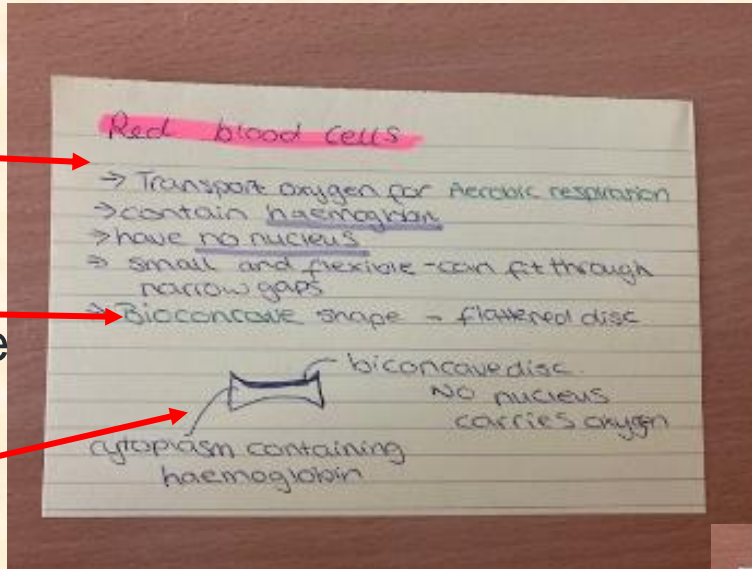 Red blood cells
→ Transport oxygen for Aerobic respiration
→ contain haemoglobin
→ have no nucleus
→ small and flexible - can fit through
narrow gaps
→ Bioconcave shape - flattened disc
biconcave disc.
No nucleus
carries oxygen
cytoplasm containing
haemoglobin
e